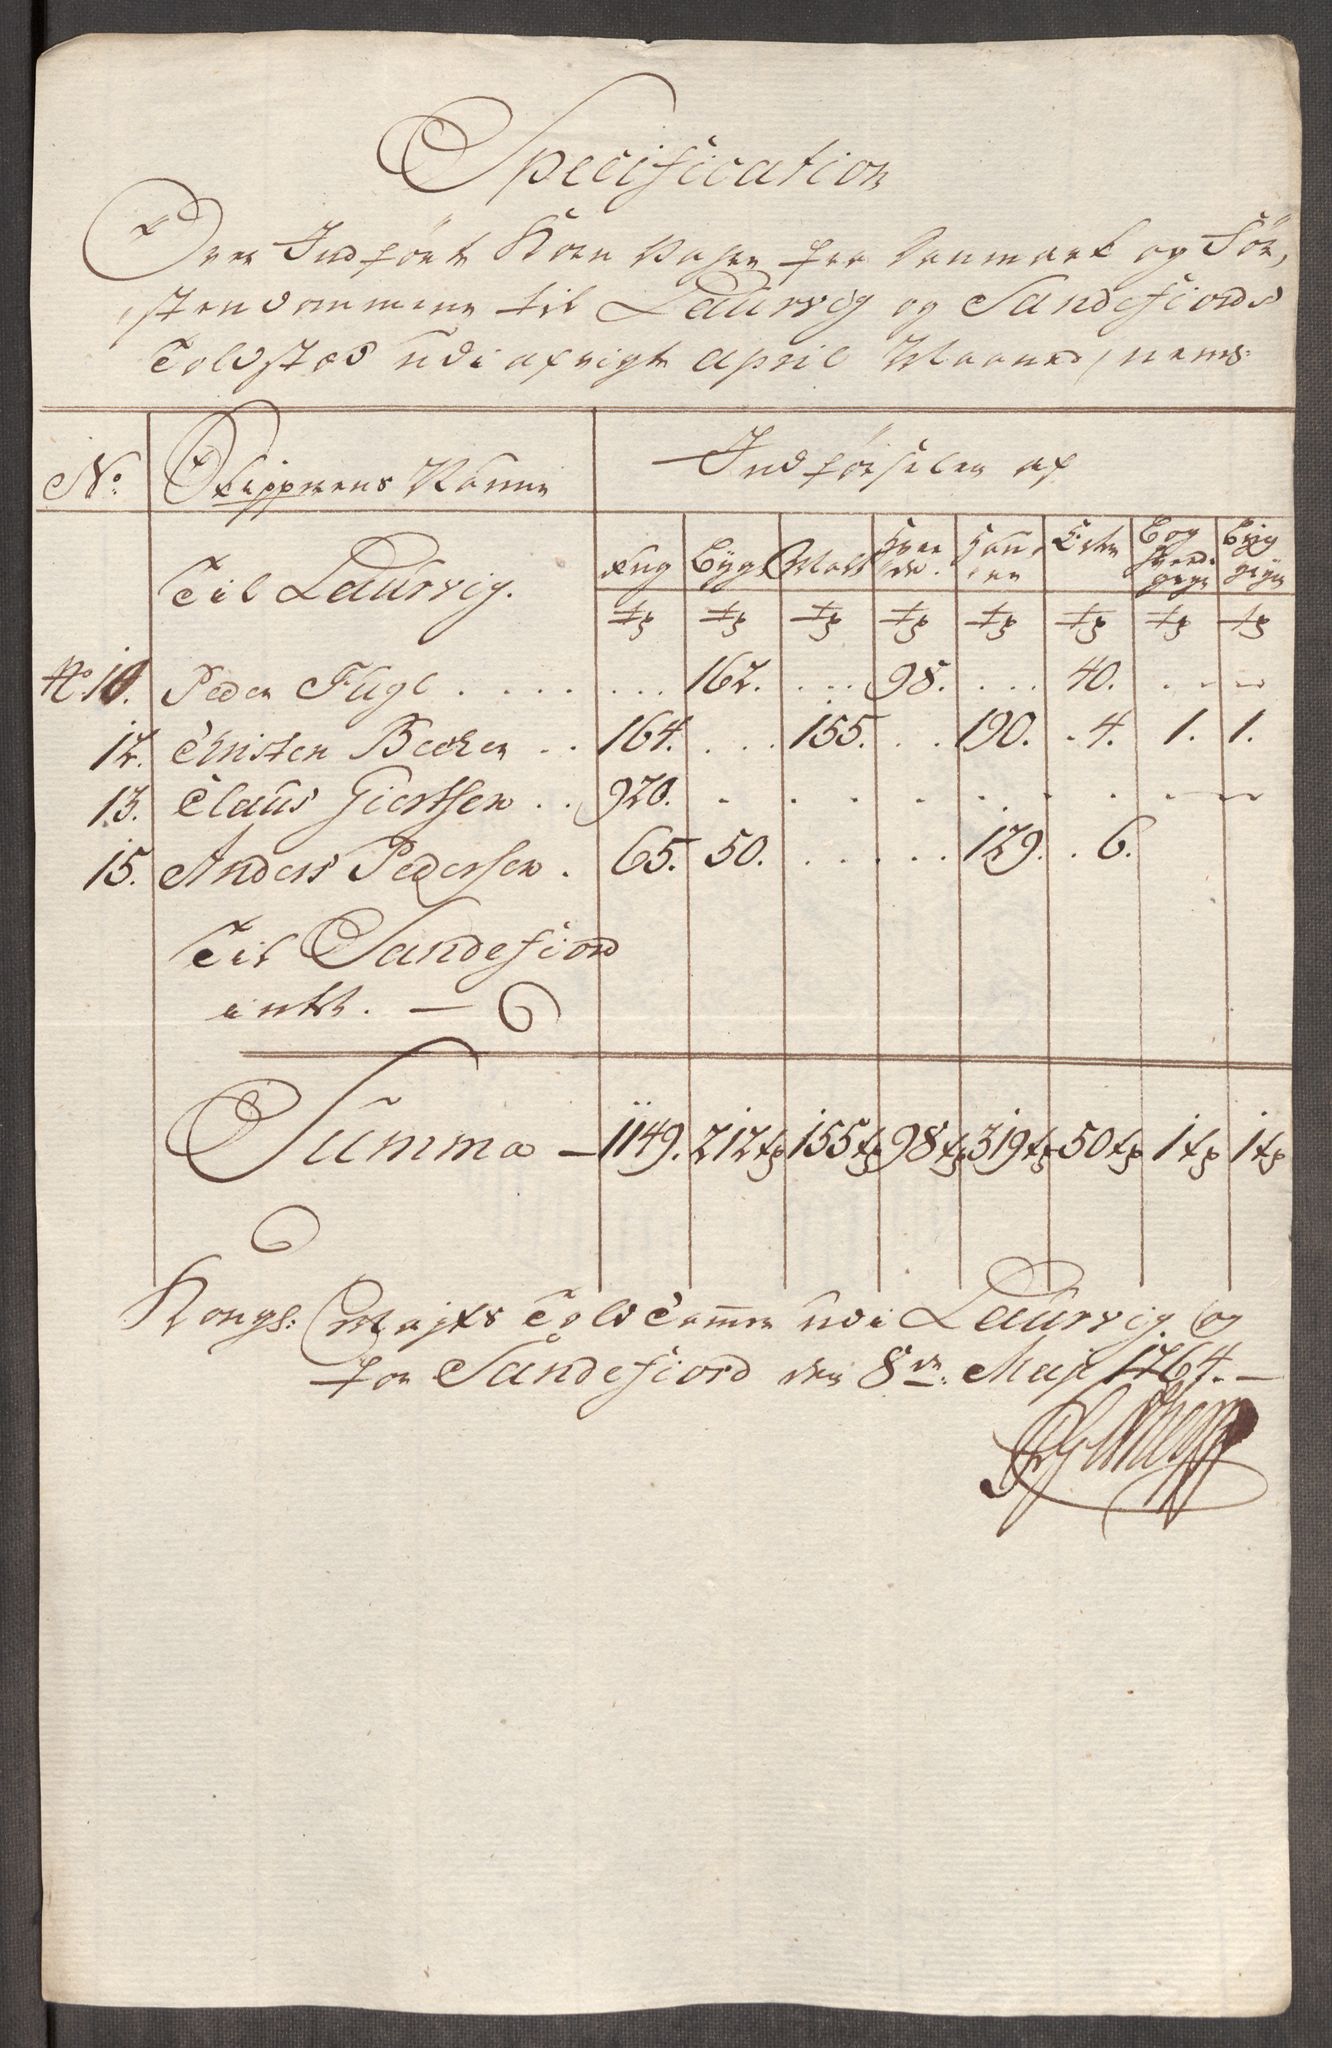 Specification
Over Indført Korn Vahre fra Danmark og För,
stendommene til Laurvig og Sandefiords
Toldsted udi afvigte April Maaned, nems:
No. Skippernes Nafne Indførselen af
Til Laurvig. Rug Bÿg Malt Hvede Hafre Erter Bog hvede grÿn Bÿg grÿn
tr tr tr tr tr tr tr tr
No. 10. Peder Fugl . . . . . . . . 162. . . . 98. . . . 40. . - -
12. Christen Becker . . 164. . . . 155. . . 190. . 4. 1. 1.
13. Claus Giertsen . . 920. . . . . . . . . . - -
15. Anders Pedersen . 65. 50. . . . . . . 129. . 6.
Til Sandefiord
intet. —
Summa — 1149. 212 tr 155 tr 98 tr 319 tr 50 tr 1 tr 1 tr
Kongl: Mayts Told Camer udi Laurvig og
for Sandefiord den 8de: Maji 1764. —